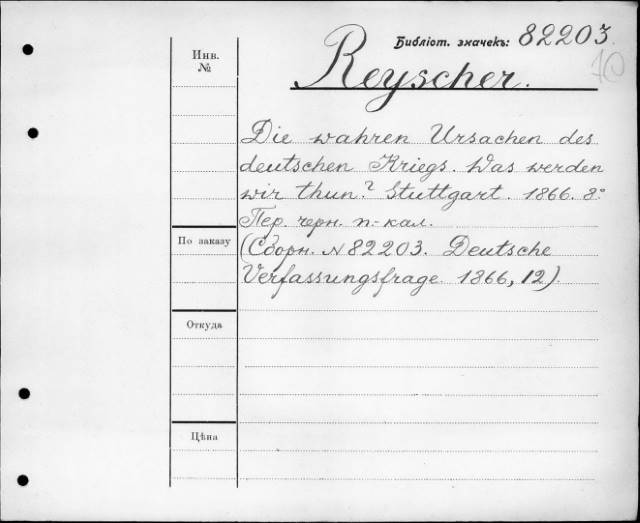 Библіот. значекъ: 82203
10
Reyscher.
Инв.
№
Die wahren Ursachen des
deutschen Kriegs. Was werden
wir thun? Stuttgart. 1866. 8°
Пер. черн. п.-кал.
По заказу
(Сборн. № 82203. Deutsche
Verfassungsfrage. 1866, 12).
Откуда
Цѣна